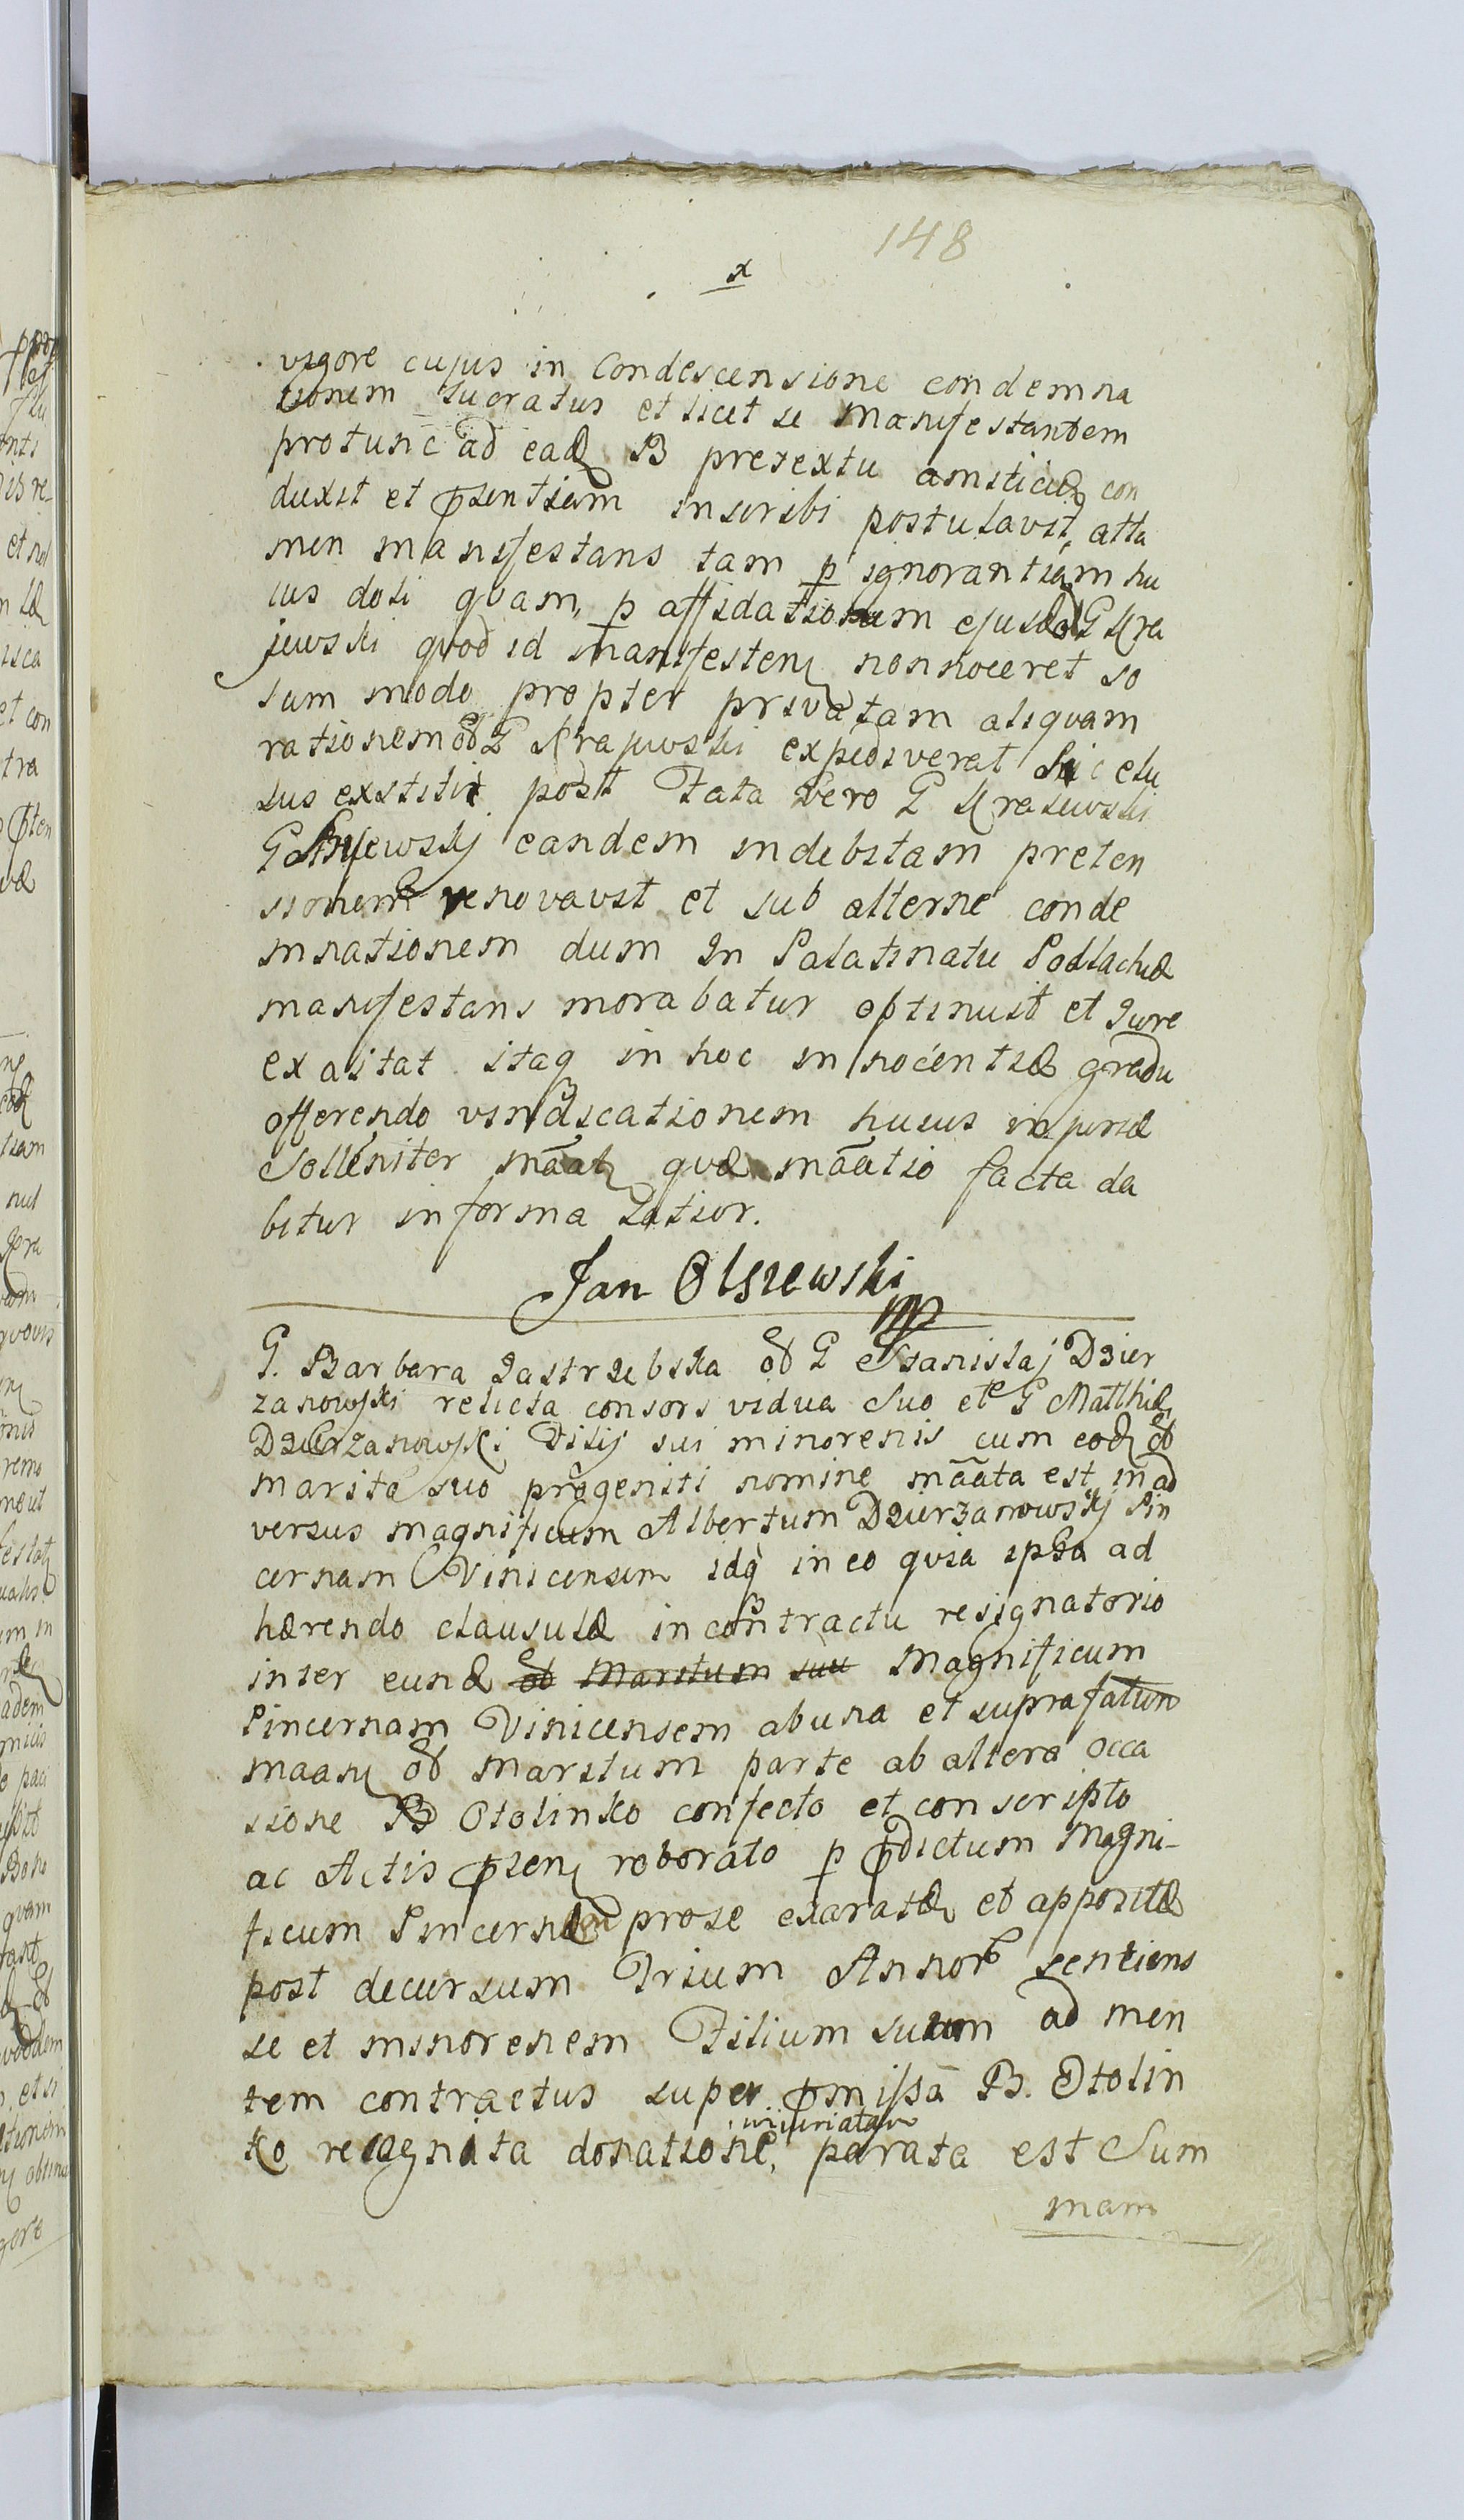 148
x
vigore cujus in Condescensione condemna
tionem lucratus et licet se Manifestantem
protunc ad ead B pretextu amiticiæ con
duxit et pñsentiam inscribi postulavit, atta
men manifestans tam p ignorantiam hu
ius doli qvam, p affidationem ejusd G Kra
jewski qvod id manifesten nonnoceret so
lum modo propter privatam aliqvam
rationem od G Krajewski expediverat Sic elu
sus exstitit post Fata Vero G Krasewski
G eandem indebitam preten
sionem renovavit et sub alterne conde
mnationem dum In Palatinatu Podlachiæ
manifestans morabatur optinuit et Iure
exagitat itaq in hoc innocentiæ gradu
offerendo vindicationem huius injuriæ
Solleniter mãat qvæ mãatio facta da
bitur in forma Latior.
Jan Olszewski
mp
G. Barbara Jastrzebska od G Stanislaj Dzier
zanowski relicta consors vidua Suo et G Matthiæ
Dzierzanowski Filij sui minorenis cum eod od
marito suo progeniti nomine mãata est in ad
versus magnificum Albertum Dzierzanowskj Pin
cernam Vinicensem idq in eo qvia ipsa ad
hærendo clausulæ in contractu resignatorio
inter eund od Maritum suu Magnificum
Pincernam Vinicensem abuna et suprafatum
maan od Maritum parte ab altera occa
sione B Otolinko confecto et conscripto
ac Actis pñsen roborato p pdictum Magni-
ficum Pincernam prose exaratæ et appositæ
post decursum Trium Annor sentiens
se et minorenem Filium suum ad men
tem contractus super pmissa B. Otolin
ko recognita donatione, parata est Sum
injuriatam
mam